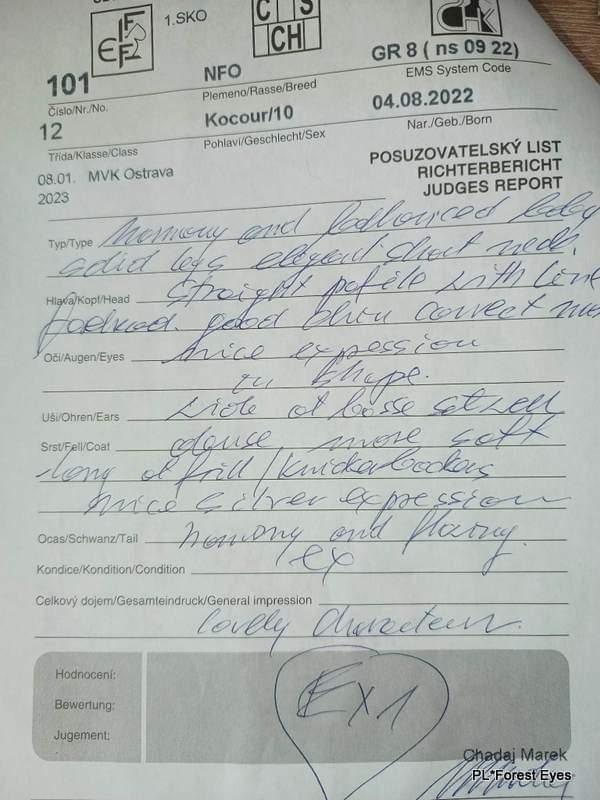 1.SKO
FIFe
CISSCH
CHK
101
NFO
GR 8 ( ns 09 22)
Číslo/Nr./No.
Plemeno/Rasse/Breed
EMS System Code
12
Kocour/10
04.08.2022
Třída/Klasse/Class
Pohlaví/Geschlecht/Sex
Nar./Geb./Born
08.01. MVK Ostrava
2023
POSUZOVATELSKÝ LIST
RICHTERBERICHT
JUDGES REPORT
Typ/Type and
solid legs elegant short neck.
Hlava/Kopf/Head straight profile with line
good chin correct
Oči/Augen/Eyes nice expression
in shape.
Uši/Ohren/Ears wide at basse set well
Srst/Fell/Coat more soft
long at frill/knickerbockers
nice silver expression
Ocas/Schwanz/Tail and
Kondice/Kondition/Condition ex
Celkový dojem/Gesamteindruck/General impression
lovely
Hodnocení:
Bewertung:
Jugement:
Ex 1
Chadaj Marek
PL*Forest Eyes